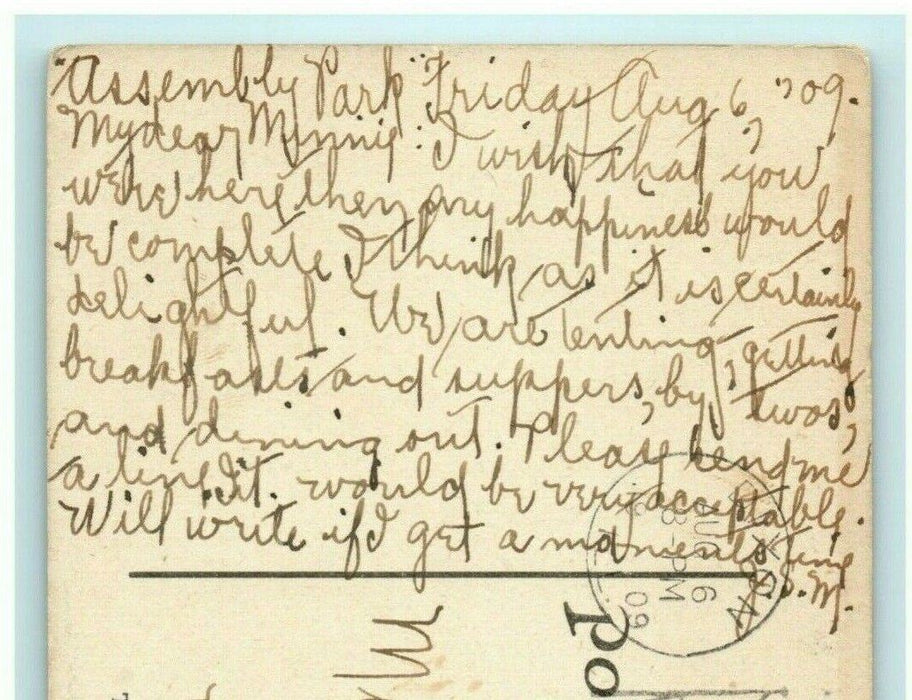 "Assembly Park" Friday Aug 6, '09.
My dear Minnie: I wish that you
were here then my happiness would
be complete I think as it is certainly
delightful. We are tenting, getting
breakfasts and suppers, by twos,
and dining out. Please send me
a line. It would be very acceptable.
Will write if I get a moment's time
M.
AUG 6
3-PM
09